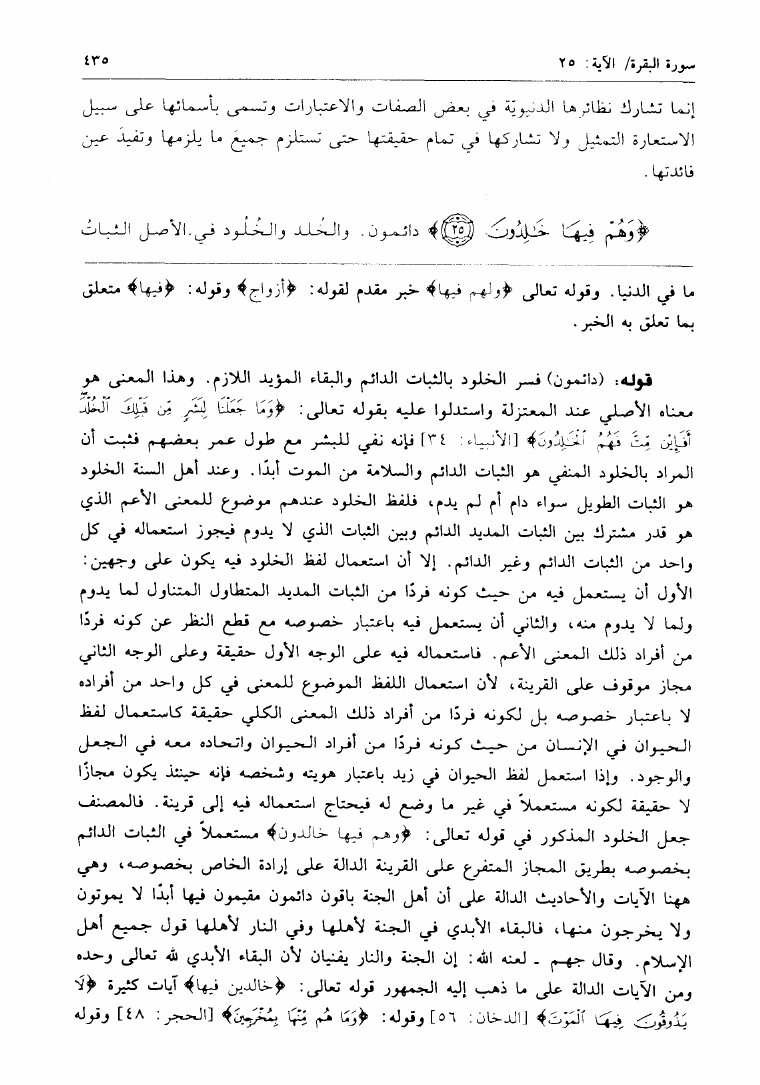 سورة البقرة/ الآية: ٢٥
٤٣٥
إنما تشارك نظائرها الدنيويّة في بعض الصفات والاعتبارات وتسمى بأسمائها على سبيل
الاستعارة التمثيل ولا تشاركها في تمام حقيقتها حتى تستلزم جميعَ ما يلزمها وتفيدَ عين
فائدتها.
﴿وَهُمْ فِيهَا خَالِدُونَ ﴿٢٥﴾﴾ دائمون. والخُلد والخُلُود في الأصل الثباتُ
ما في الدنيا. وقوله تعالى ﴿ولهم فيها﴾ خبر مقدم لقوله: ﴿أزواج﴾ وقوله: ﴿فيها﴾ متعلق
بما تعلق به الخبر.
قوله: (دائمون) فسر الخلود بالثبات الدائم والبقاء المؤيد اللازم. وهذا المعنى هو
معناه الأصلي عند المعتزلة واستدلوا عليه بقوله تعالى: ﴿وَمَا جَعَلْنَا لِبَشَرٍ مِّن قَبْلِكَ الْخُلْدَّ
أَفَإِيْن مِّتَّ فَهُمُ الْخَالِدُونَ﴾ [الأنبياء: ٣٤] فإنه نفي للبشر مع طول عمر بعضهم فثبت أن
المراد بالخلود المنفي هو الثبات الدائم والسلامة من الموت أبدًا. وعند أهل السنة الخلود
هو الثبات الطويل سواء دام أم لم يدم، فلفظ الخلود عندهم موضوع للمعنى الأعم الذي
هو قدر مشترك بين الثبات المديد الدائم وبين الثبات الذي لا يدوم فيجوز استعماله في كل
واحد من الثبات الدائم وغير الدائم. إلا أن استعمال لفظ الخلود فيه يكون على وجهين:
الأول أن يستعمل فيه من حيث كونه فردًا من الثبات المديد المتطاول المتناول لما يدوم
ولما لا يدوم منه، والثاني أن يستعمل فيه باعتبار خصوصه مع قطع النظر عن كونه فردًا
من أفراد ذلك المعنى الأعم. فاستعماله فيه على الوجه الأول حقيقة وعلى الوجه الثاني
مجاز موقوف على القرينة، لأن استعمال اللفظ الموضوع للمعنى في كل واحد من أفراده
لا باعتبار خصوصه بل لكونه فردًا من أفراد ذلك المعنى الكلي حقيقة كاستعمال لفظ
الحيوان في الإنسان من حيث كونه فردًا من أفراد الحيوان واتحاده معه في الجعل
والوجود. وإذا استعمل لفظ الحيوان في زيد باعتبار هويته وشخصه فإنه حينئذ يكون مجازًا
لا حقيقة لكونه مستعملاً في غير ما وضع له فيحتاج استعماله فيه إلى قرينة. فالمصنف
جعل الخلود المذكور في قوله تعالى: ﴿وهم فيها خالدون﴾ مستعملاً في الثبات الدائم
بخصوصه بطريق المجاز المتفرع على القرينة الدالة على إرادة الخاص بخصوصه، وهي
ههنا الآيات والأحاديث الدالة على أن أهل الجنة باقون دائمون مقيمون فيها أبدًا لا يموتون
ولا يخرجون منها، فالبقاء الأبدي في الجنة لأهلها وفي النار لأهلها قول جميع أهل
الإسلام. وقال جهم ـ لعنه الله: إن الجنة والنار يفنيان لأن البقاء الأبدي لله تعالى وحده
ومن الآيات الدالة على ما ذهب إليه الجمهور قوله تعالى: ﴿خالدين فيها﴾ آيات كثيرة ﴿لَا
يَذُوقُونَ فِيهَا الْمَوْتَ﴾ [الدخان: ٥٦] وقوله: ﴿وَمَا هُم مِّنْهَا بِمُخْرَجِينَ﴾ [الحجر: ٤٨] وقوله